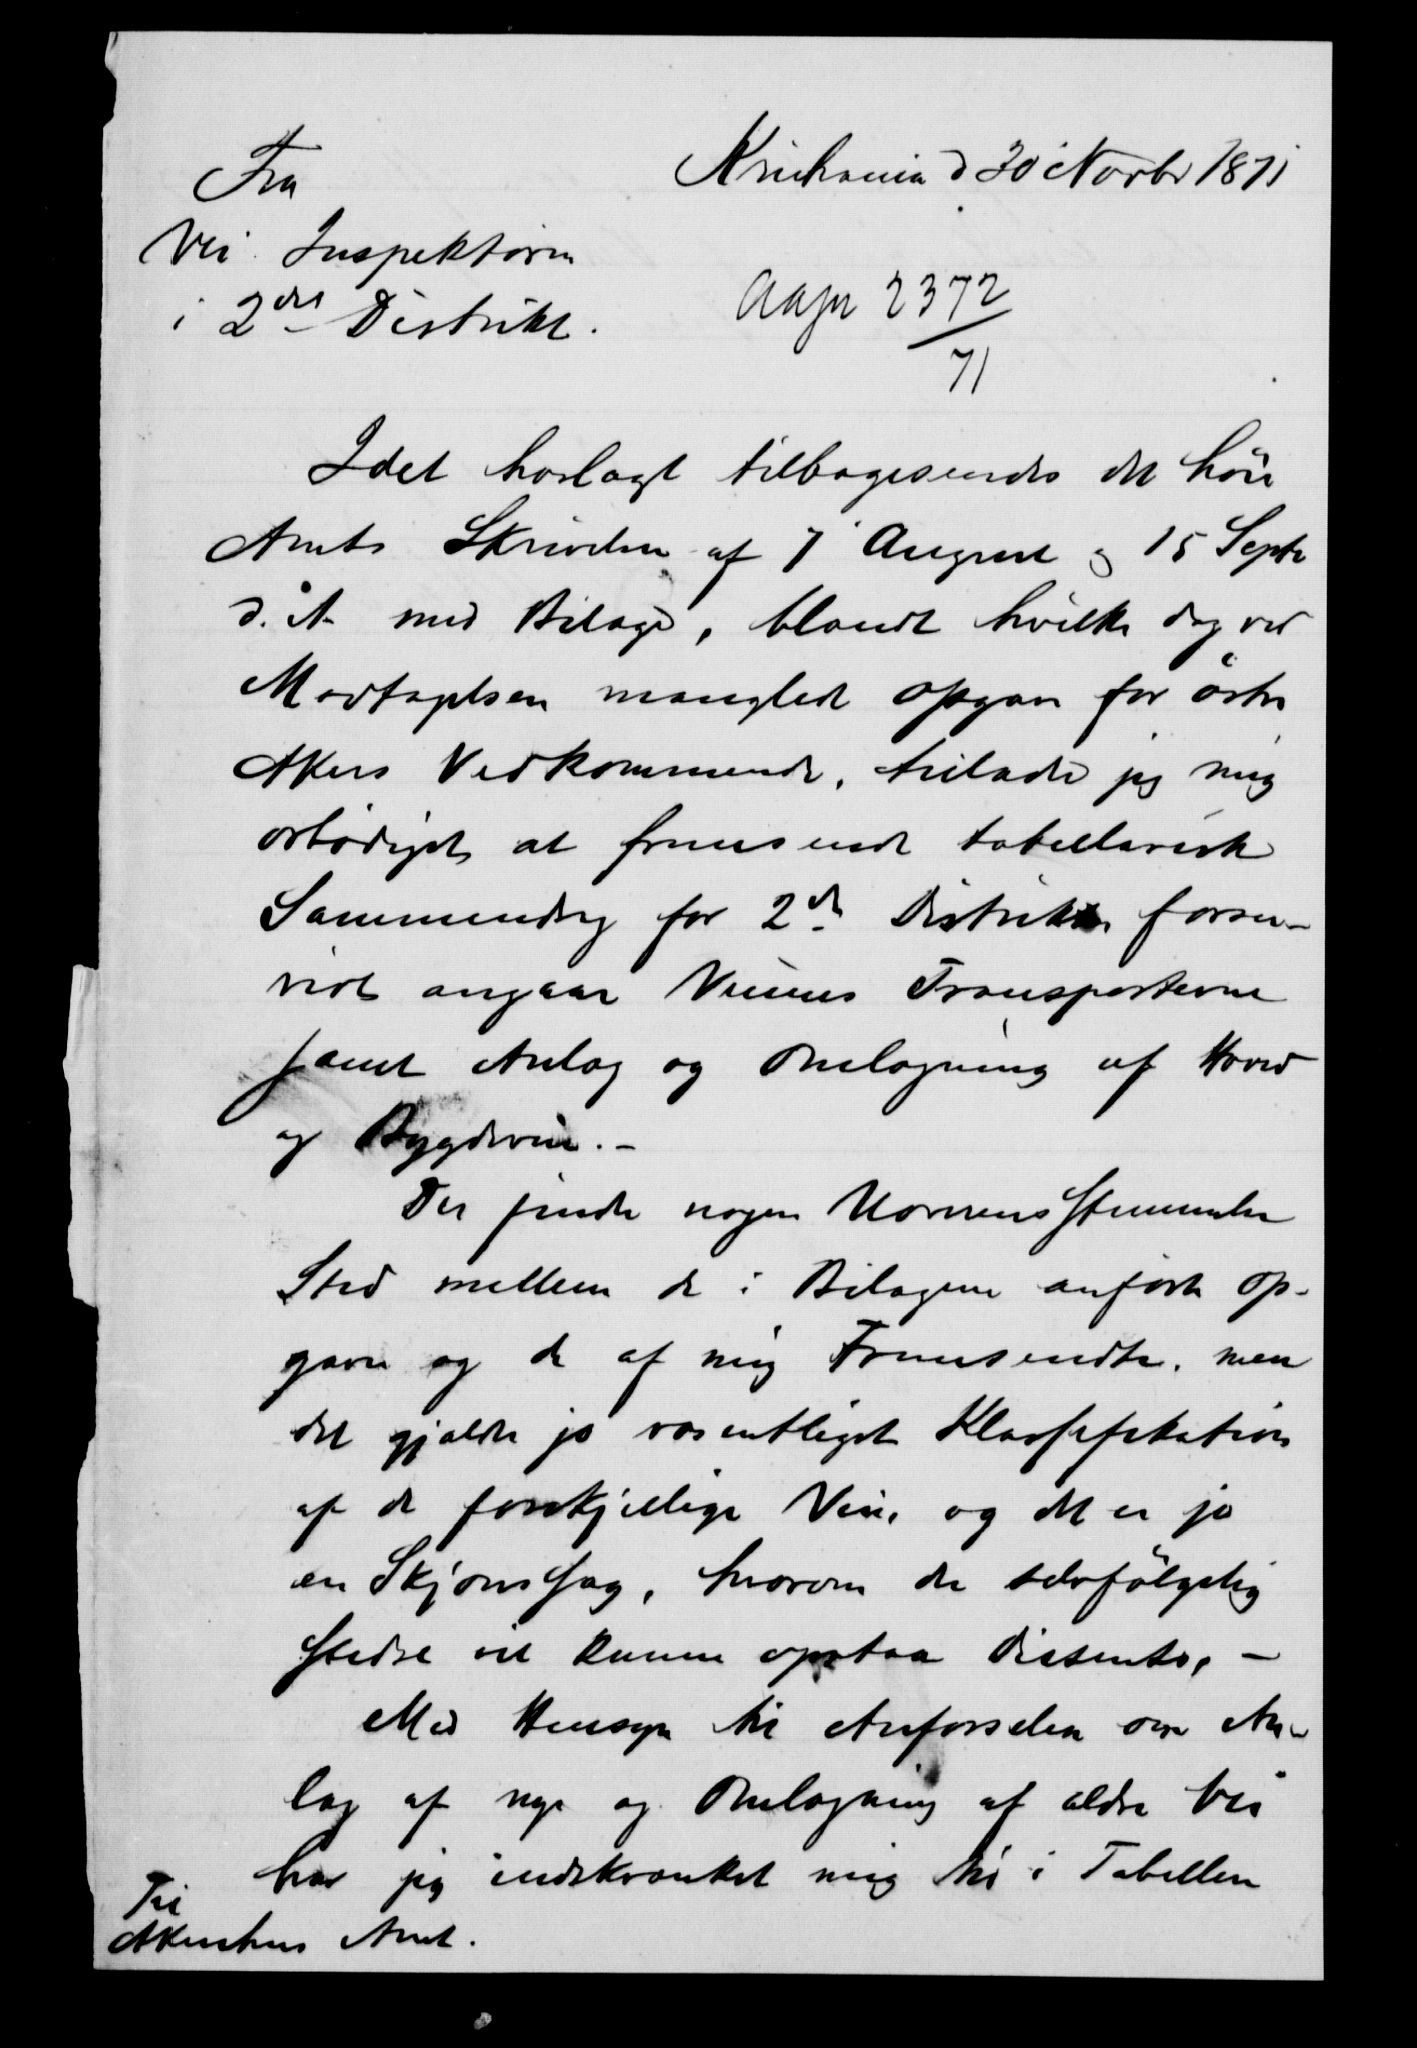 Fra
Vei Inspektøren
i 2det Distrikt.
Kristiania d 30 Novbr 1871
Aajn 2372
71
Idet hoslagt tilbagesendes det høie
Amts Skrivelser af 7 August og 15 Septr
d. A. med Bilage, blandt hvilke dog ved
Modtagelsen manglede Opgave for østre
Akers Vedkommende, tillader jeg mig
ærbødigst at fremsende tabellarisk
Sammendrag for 2det Distrikt forsaa-
vidt angaar Veienes Transporterne
samt Anlæg og Omlægning af Hoved
og Bygdeveie. -
Der finder nogen Uovereensstemmelse
Sted mellem de i Bilagene anførte Op-
gaver og de af mig Fremsendte, men
det gjælder jo væsentligst Klassifikation
af de forskjellige Veie, og det er jo
en Skjønssag, hvorom der selvfølgelig
stedse vil kunne opstaa Dissents, -
Med Hensyn til Anførselen over An-
læg af nye og Omlægning af ældre Veie
har jeg indskrænket mig til i Tabellen
Til
Akershus Amt.